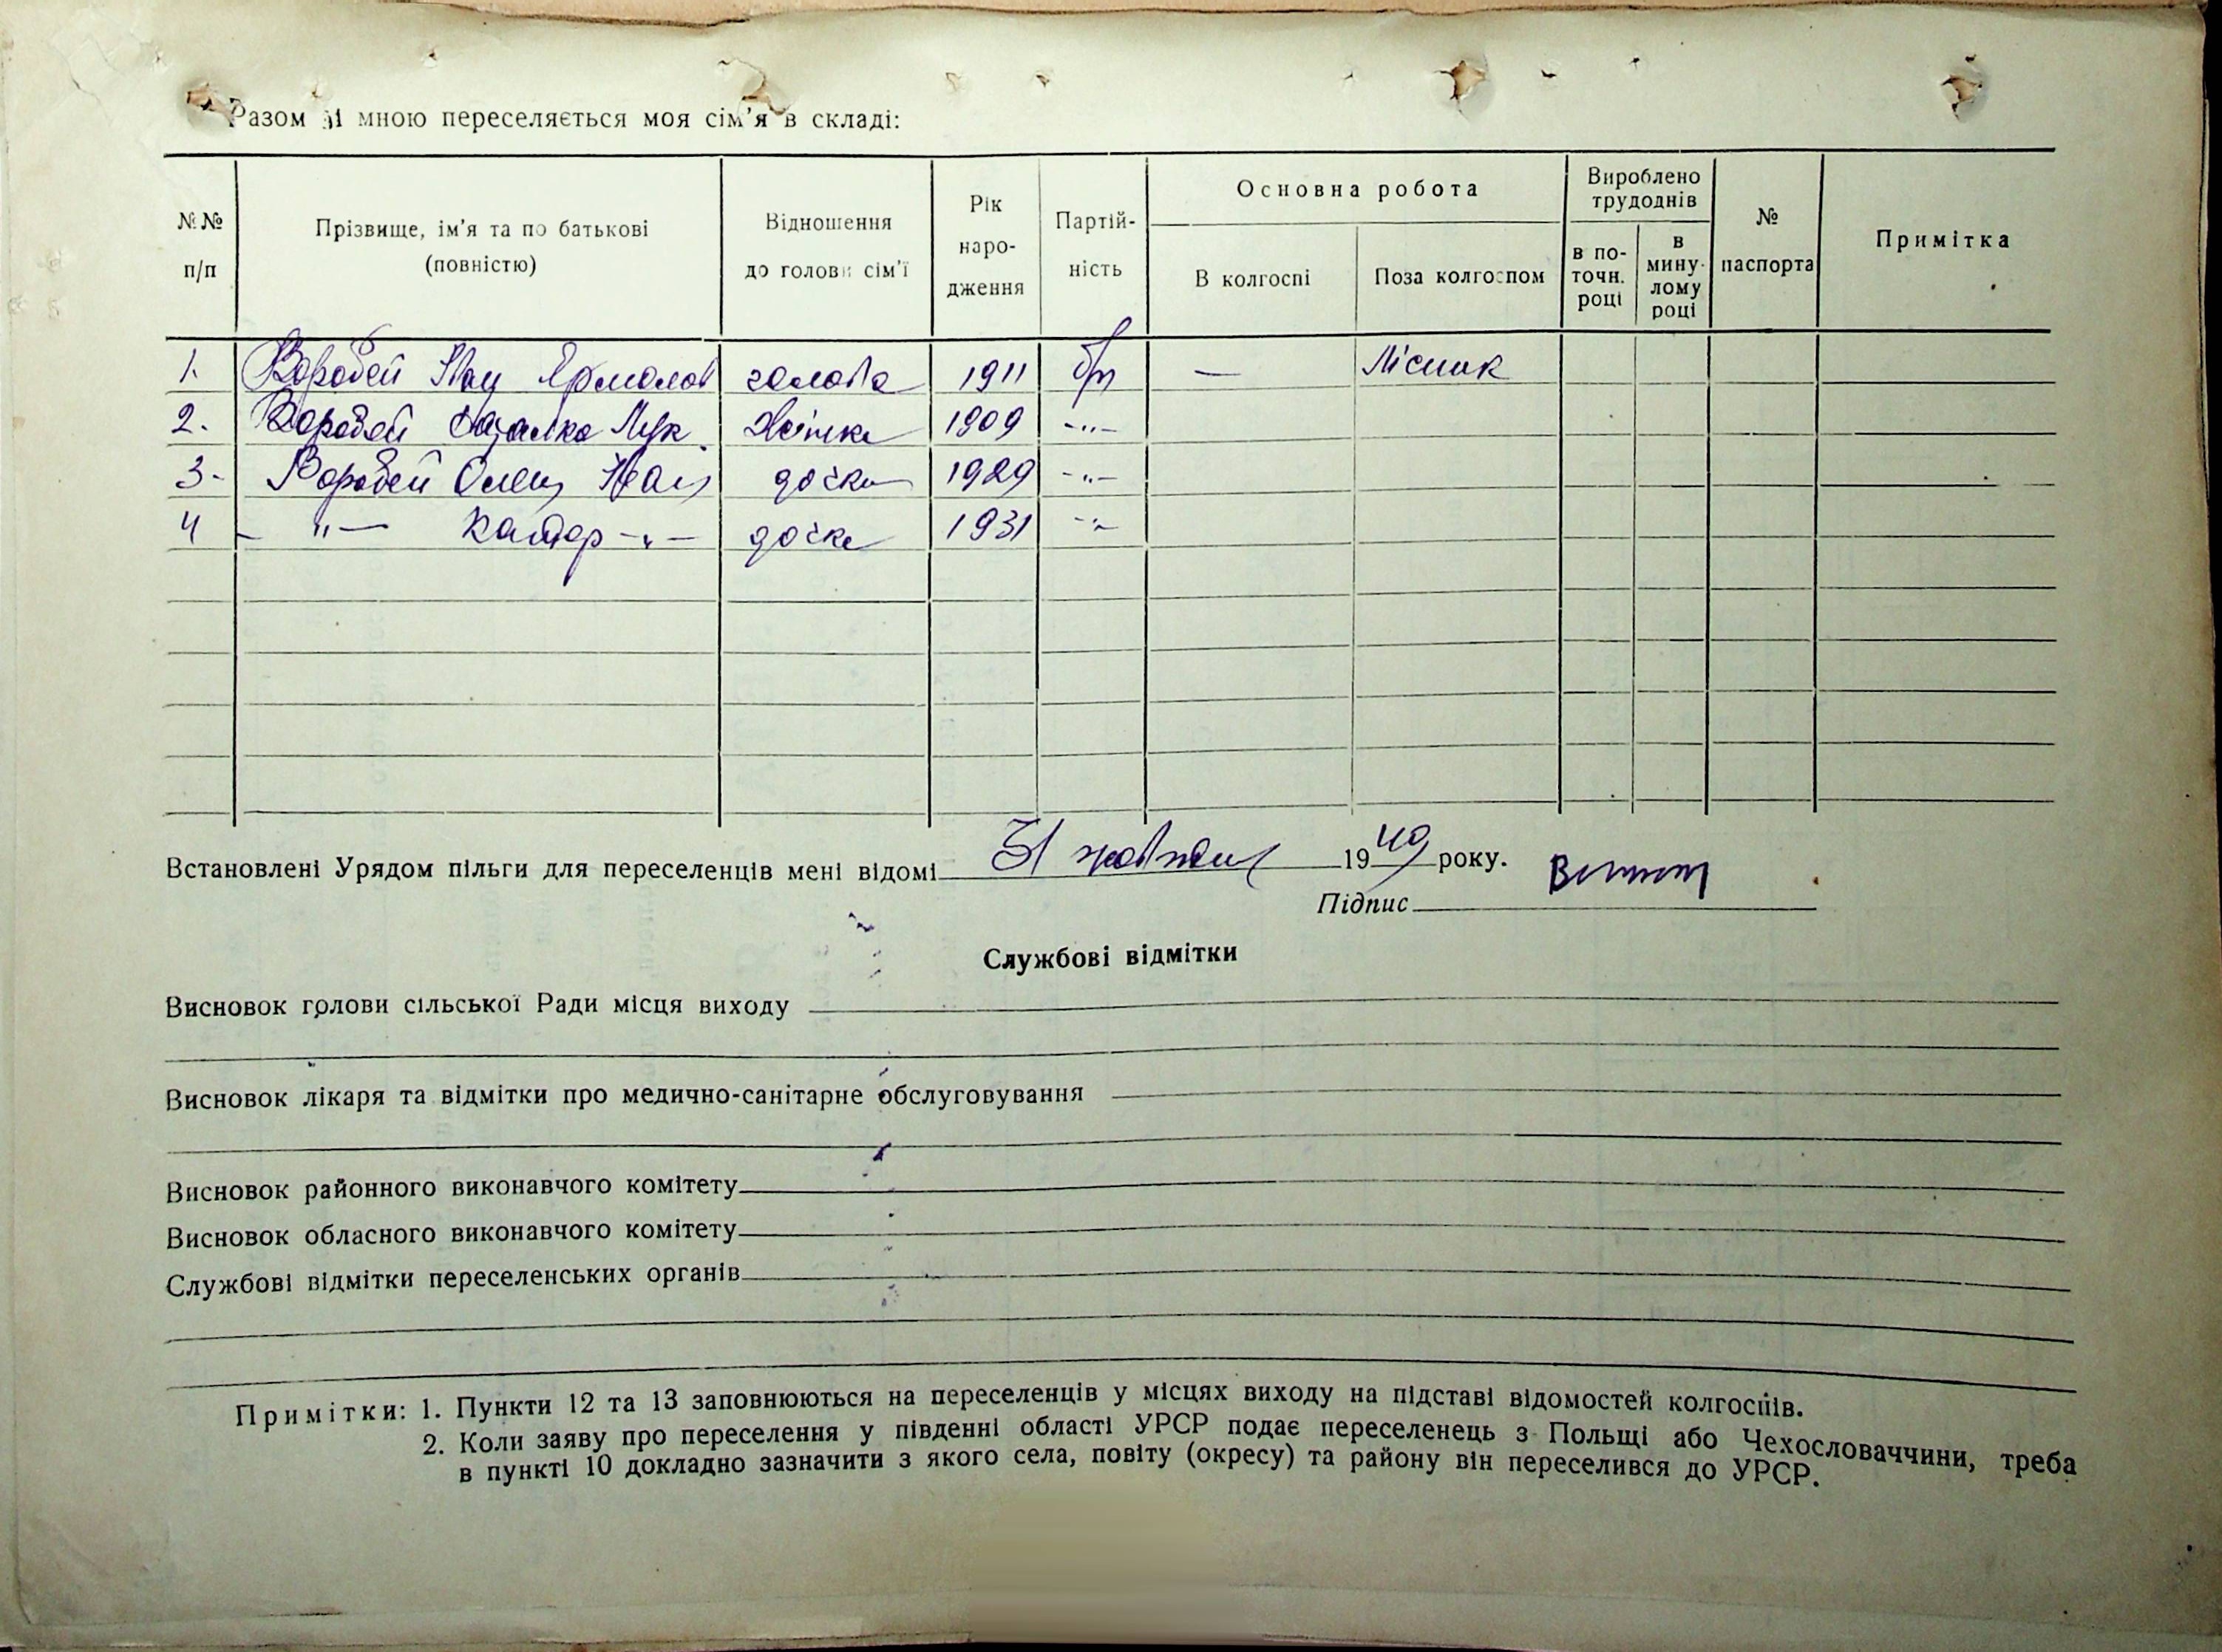 Разом зі мною переселяється моя сім'я в складі:
№№ п/п
Прізвище, ім'я та по батькові (повністю)
Відношення до голови сім'ї
Рік народження
Партійність
Основна робота
В колгоспі
Поза колгоспом
Вироблено трудоднів
в поточн. році
в минулому році
№ паспорта
Примітка
1. Воробей Ярмолов голова 1911 б/п — Лісник
2. Воробей Жінка 1909 -"-
3- Воробей дочка 1929 -"-
4 - "- Катер -"- дочка 1931 -"-
Встановлені Урядом пільги для переселенців мені відомі 31 жовтня 1949 року.
Підпис
Службові відмітки
Висновок голови сільської Ради місця виходу
Висновок лікаря та відмітки про медично-санітарне обслуговування
Висновок районного виконавчого комітету
Висновок обласного виконавчого комітету
Службові відмітки переселенських органів
Примітки: 1. Пункти 12 та 13 заповнюються на переселенців у місцях виходу на підставі відомостей колгоспів.
2. Коли заяву про переселення у південні області УРСР подає переселенець з Польщі або Чехословаччини, треба
в пункті 10 докладно зазначити з якого села, повіту (окресу) та району він переселився до УРСР.